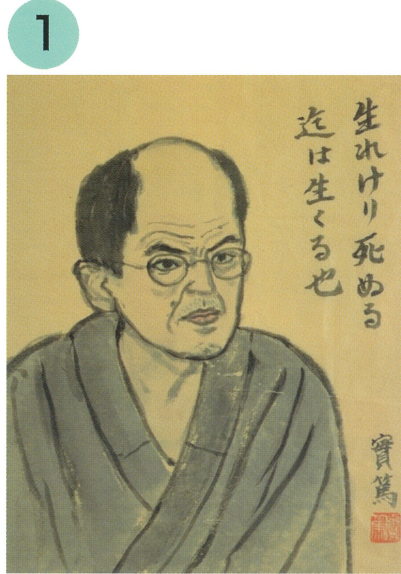 1
生れけり死ぬる
迄は生くる也
實篤